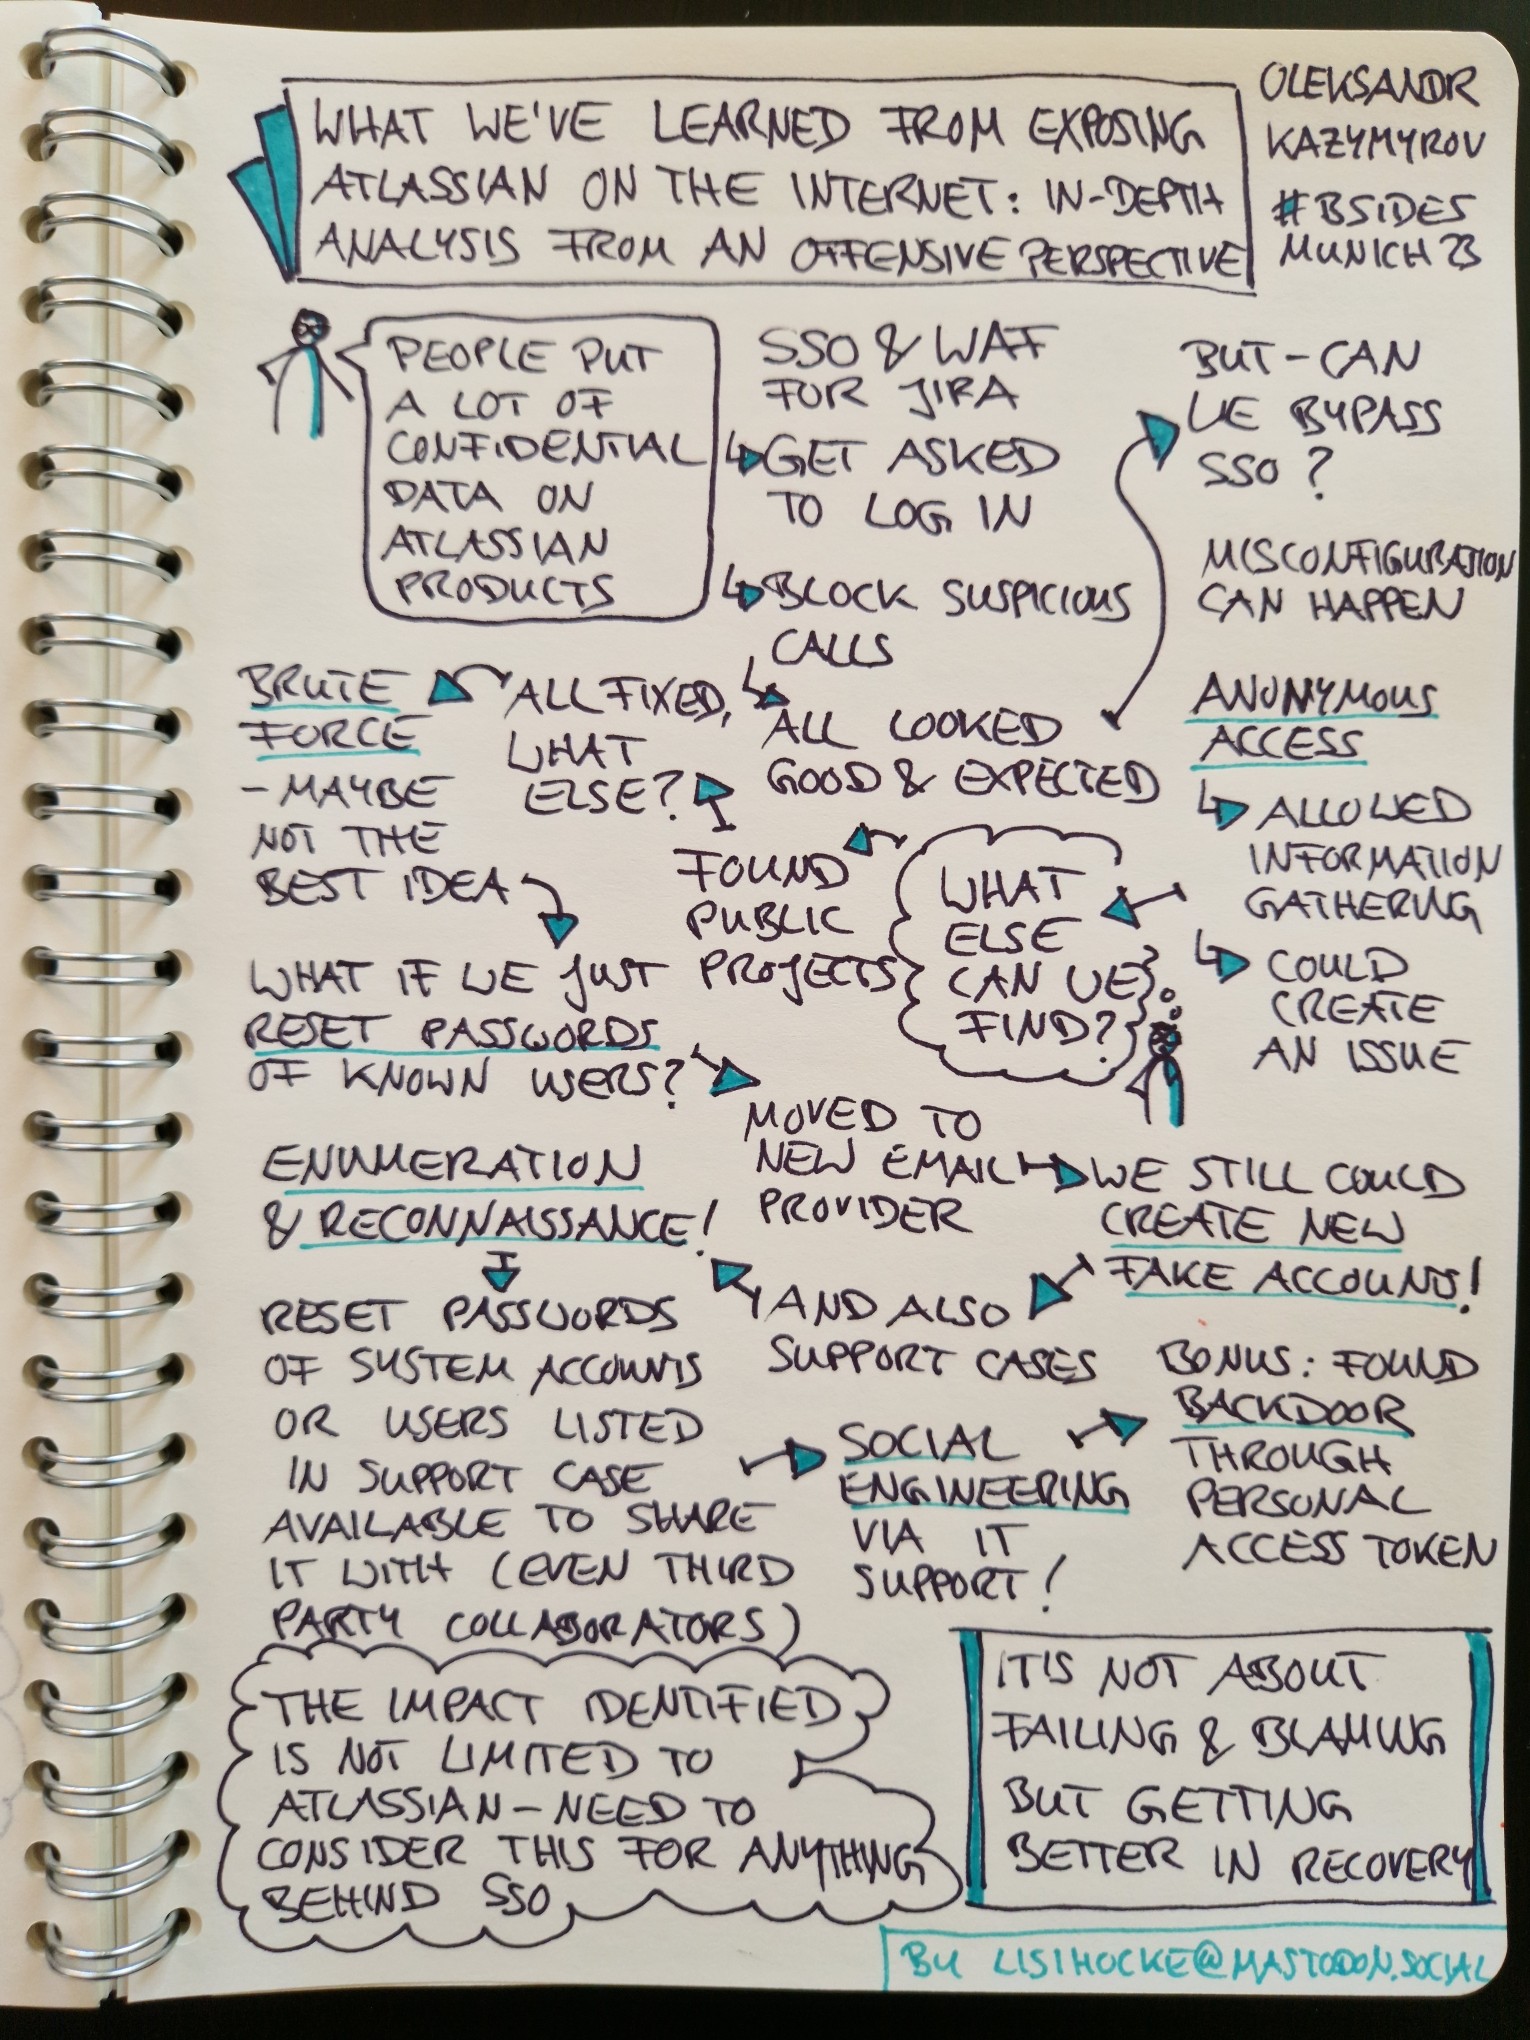 WHAT WE'VE LEARNED FROM EXPOSING
ATLASSIAN ON THE INTERNET: IN-DEPTH
ANALYSIS FROM AN OFFENSIVE PERSPECTIVE
OLEKSANDR
KAZYMYROV
#BSIDES
MUNICH23
PEOPLE PUT
A LOT OF
CONFIDENTIAL
DATA ON
ATLASSIAN
PRODUCTS
SSO & WAF
FOR JIRA
GET ASKED
TO LOG IN
BLOCK SUSPICIOUS
CALLS
ALL LOOKED
GOOD & EXPECTED
BUT - CAN
WE BYPASS
SSO?
MISCONFIGURATION
CAN HAPPEN
ANONYMOUS
ACCESS
ALLOWED
INFORMATION
GATHERING
COULD
CREATE
AN ISSUE
WHAT
ELSE
CAN WE
FIND?
FOUND
PUBLIC
PROJECTS
ALL FIXED,
WHAT
ELSE?
BRUTE
FORCE
- MAYBE
NOT THE
BEST IDEA
WHAT IF WE JUST
RESET PASSWORDS
OF KNOWN USERS?
MOVED TO
NEW EMAIL
PROVIDER
WE STILL COULD
CREATE NEW
FAKE ACCOUNTS!
AND ALSO
SUPPORT CASES
ENUMERATION
& RECONNAISSANCE!
RESET PASSWORDS
OF SYSTEM ACCOUNTS
OR USERS LISTED
IN SUPPORT CASE
AVAILABLE TO SHARE
IT WITH (EVEN THIRD
PARTY COLLABORATORS)
SOCIAL
ENGINEERING
VIA IT
SUPPORT!
BONUS: FOUND
BACKDOOR
THROUGH
PERSONAL
ACCESS TOKEN
THE IMPACT IDENTIFIED
IS NOT LIMITED TO
ATLASSIAN - NEED TO
CONSIDER THIS FOR ANYTHING
BEHIND SSO
IT'S NOT ABOUT
FAILING & BLAMING
BUT GETTING
BETTER IN RECOVERY
BY LISIHOCKE@MASTODON.SOCIAL